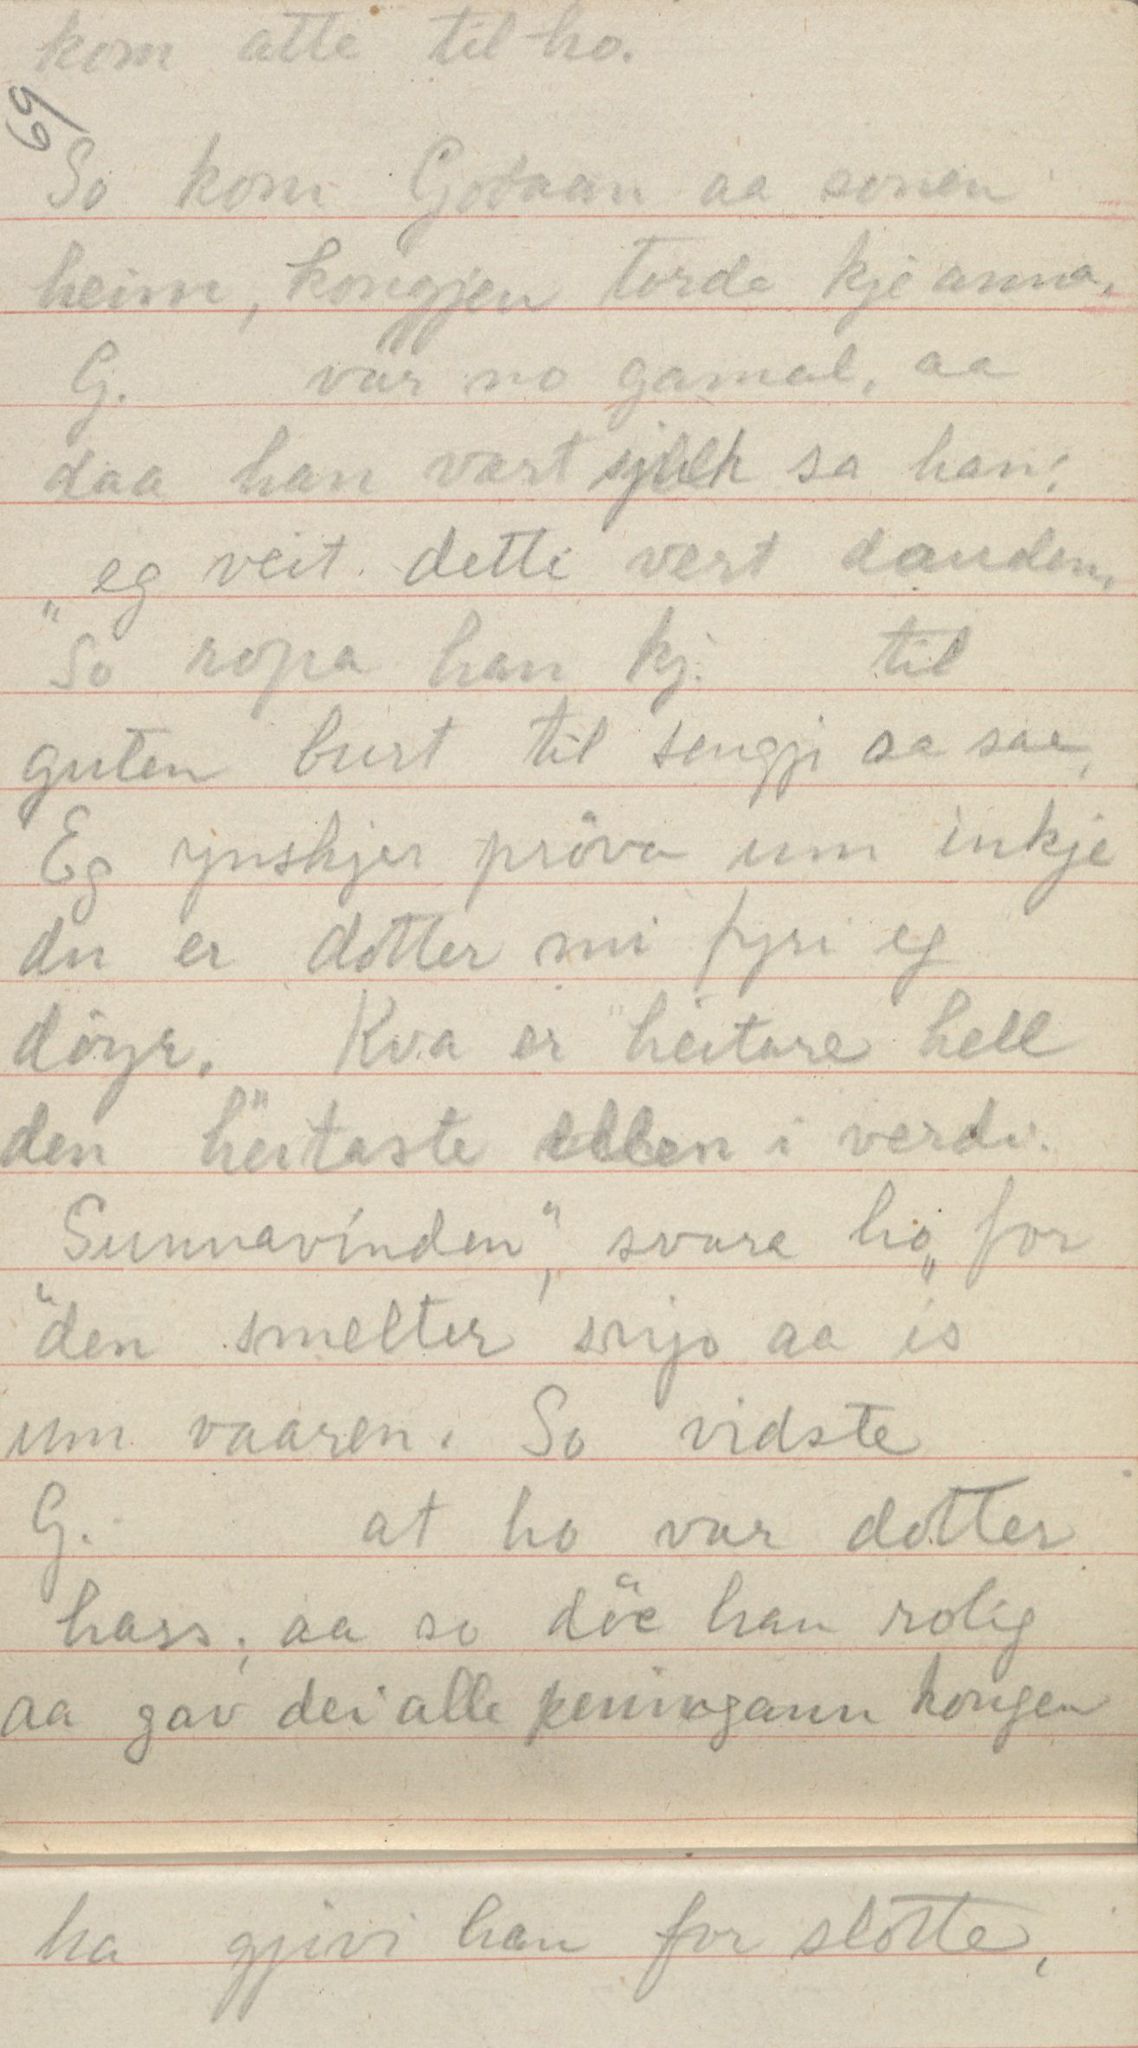 kom atte til ho.
59
So kom Godaan aa sonen
heim, kongjen torde kje anna.
G. var no gamal, aa
daa han vart sjuk sa han:
"eg veit detti vert dauden."
So ropa han kj. til
guten burt til sengji aa sae,
Eg ynskjer pröva um inkje
du er dotter mi fyri eg
döyr. Kva er heitare hell
den heitaste ellen i verdi.
"Sunnavinden", svara ho, "for
den smelter snjo aa is
um vaaren. So vidste
G. at ho var dotter
hass, aa so döe han rolig
aa gav dei alle peningann kongen
ha gjivi han for slotte,